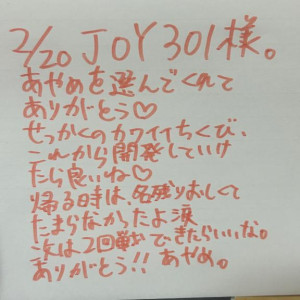 2/20 JOY301様。
あやめを選んでくれて
ありがとう♡
せっかくのカワイイちくび、
これから開発していけ
たら良いね♡
帰る時は、名残りおしくて
たまらなかったよ涙
次は2回戦できたらいいな。
ありがとう!! あやめ。